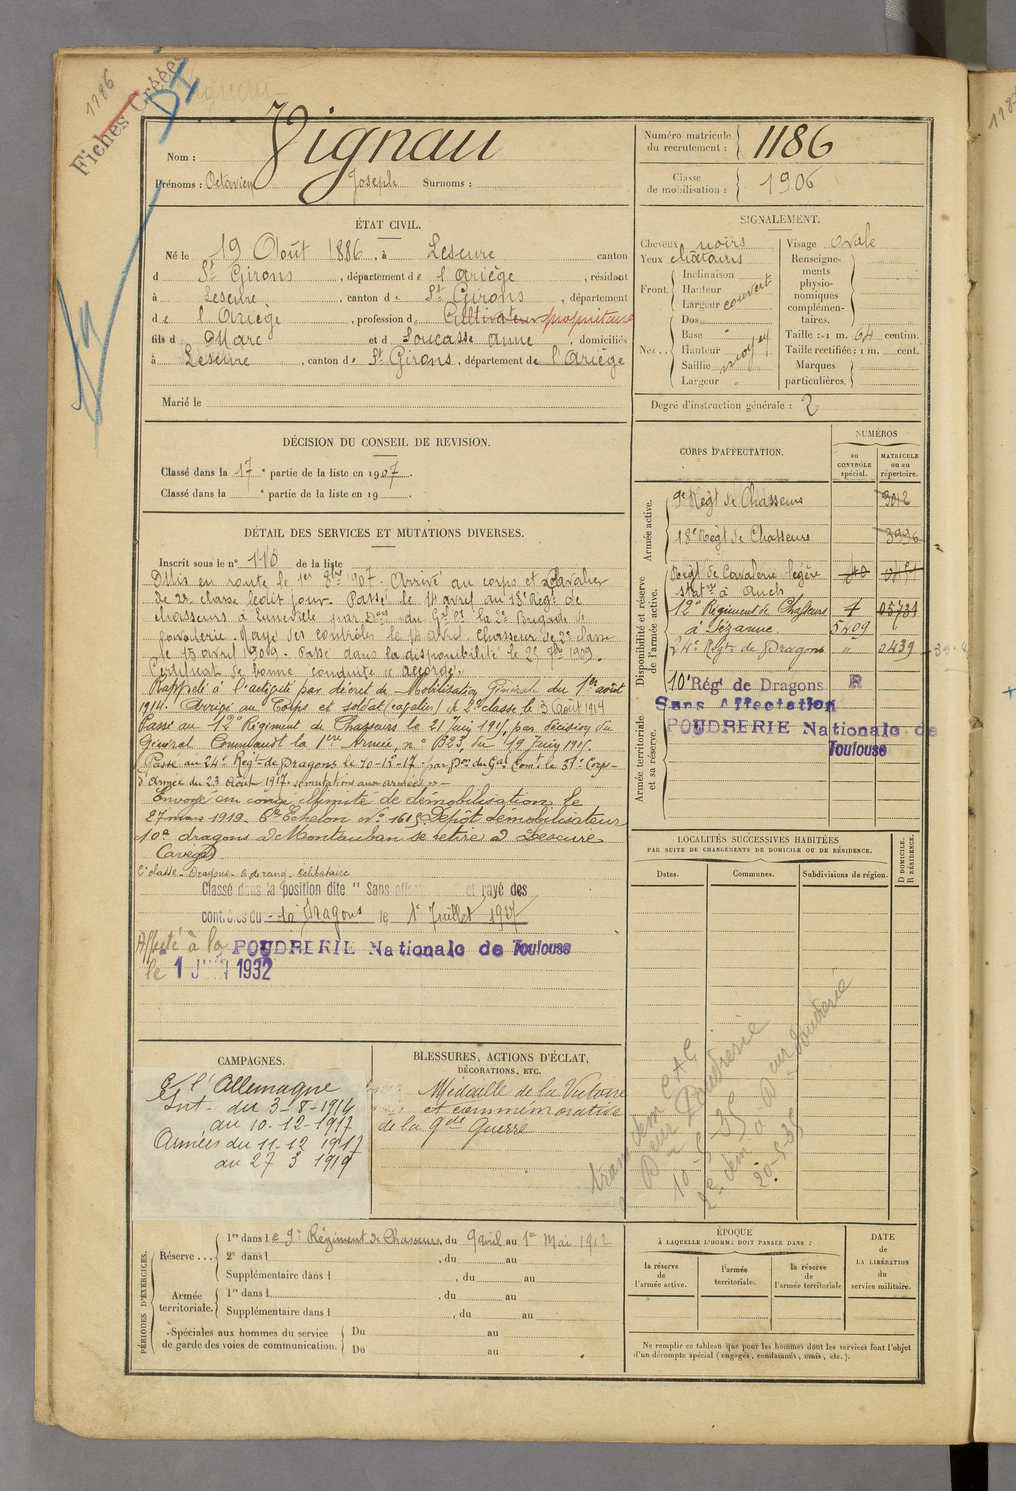 1186
Fiches Créées
Nom : Vignau
Prénoms : Octavien Joseph Surnoms :
Numéro matricule du recrutement : 1186
Classe de mobilisation : 1906
ÉTAT CIVIL.
Né le 19 Août 1886, à Lescure canton
d St Girons, département de l'Ariège, résidant
à Lescure, canton de St Girons, département
de l'Ariège, profession de Cultivateur propriétaire
fils d Marc et d Loucasse Anne, domiciliés
à Lescure, canton de St Girons, département de l'Ariège
Marié le
SIGNALEMENT.
Cheveux noirs
Yeux châtains
Front. Inclinaison
Hauteur
Largeur couvert
Nez.. Dos
Base
Hauteur moyen
Saillie
Largeur
Visage ovale
Renseignements physionomiques complémentaires.
Taille : 1 m. 64 centim.
Taille rectifiée : 1 m. cent.
Marques particulières.
Degré d'instruction générale : 2
DÉCISION DU CONSEIL DE REVISION.
Classé dans la 1re partie de la liste en 1907.
Classé dans la e partie de la liste en 19 .
DÉTAIL DES SERVICES ET MUTATIONS DIVERSES.
Inscrit sous le n° 110 de la liste
Mis en route le 1er 8bre 1907. Arrivé au corps et Cavalier
de 2e classe ledit jour. Passé le 14 avril au 18e Régt de
chasseurs à Lunéville par Don du Gal Ct la 2e Brigade de
cavalerie. Rayé des contrôles le 14 avril. Chasseur de 2e classe
le 15 avril 1909. Passé dans la disponibilité le 25 7bre 1909.
Certificat de bonne conduite "accordé".
Rappelé à l'activité par décret de Mobilisation Générale du 1er août
1914. Arrivé au Corps et soldat (cavalier) de 2e classe le 3 Août 1914
Passé au 12e Régiment de Chasseurs le 21 Juin 1915, par décision du
Général Commandt la 1ère Armée, n° B23, du 19 Juin 1915.
Passé au 24e Regt de Dragons le 10-12-17 par Don du Gal Comt le 31e Corps
d'Armée du 23 Août 1917 "mutations aux armées"
Envoyé en congé illimité de démobilisation le
27 mars 1919. 6e Echelon No 1615 Dépôt démobilisateur
10e dragons de Montauban se retire à Lescure
(Ariège)
Classé dans la position dite " Sans affect et rayé des
contrôles du 10e Dragons le 1er Juillet 1927
Affecté à la POUDRERIE Nationale de Toulouse
le 1 JUIN 1932
CORPS D'AFFECTATION.
NUMÉROS
au CONTRÔLE spécial.
MATRICULE ou au répertoire.
Armée active.
9e Régt de Chasseurs 3012
18e Régt de Chasseurs 3936
Disponibilité et réserve de l'armée active.
Régt de Cavalerie légère
statre à Auch
12e Régiment de Chasseurs
à Sézanne 5409
24e Regt de Dragons " 0439
10e Rég' de Dragons R
Sans Affectation
Armée territoriale et sa réserve.
POUDRERIE Nationale de
Toulouse
LOCALITÉS SUCCESSIVES HABITÉES
PAR SUITE DE CHANGEMENTS DE DOMICILE OU DE RÉSIDENCE.
Dates. Communes. Subdivisions de région.
D DOMICILE. R RÉSIDENCE.
CAMPAGNES.
C. l'Allemagne
Int- du 3-8-1914
au 10-12-1917
Armées du 11-12 1917
au 27 3 1919
BLESSURES, ACTIONS D'ÉCLAT,
DÉCORATIONS, ETC.
Médaille de la Victoire
et commémorative
de la gde Guerre
PÉRIODES D'EXERCICES.
Réserve ... 1re dans le 9e Régiment de Chasseurs, du 9 avril au 1er Mai 1912
2e dans l , du au
Supplémentaire dans l , du au
Armée territoriale. 1re dans l , du au
Supplémentaire dans l , du au
Spéciales aux hommes du service de garde des voies de communication. Du au
Du au
ÉPOQUE
À LAQUELLE L'HOMME DOIT PASSER DANS :
la réserve de l'armée active.
l'armée territoriale.
la réserve de l'armée territoriale
DATE de LA LIBÉRATION du service militaire.
Ne remplir ce tableau que pour les hommes dont les services font l'objet
d'un décompte spécial (engagés, condamnés, omis, etc.).